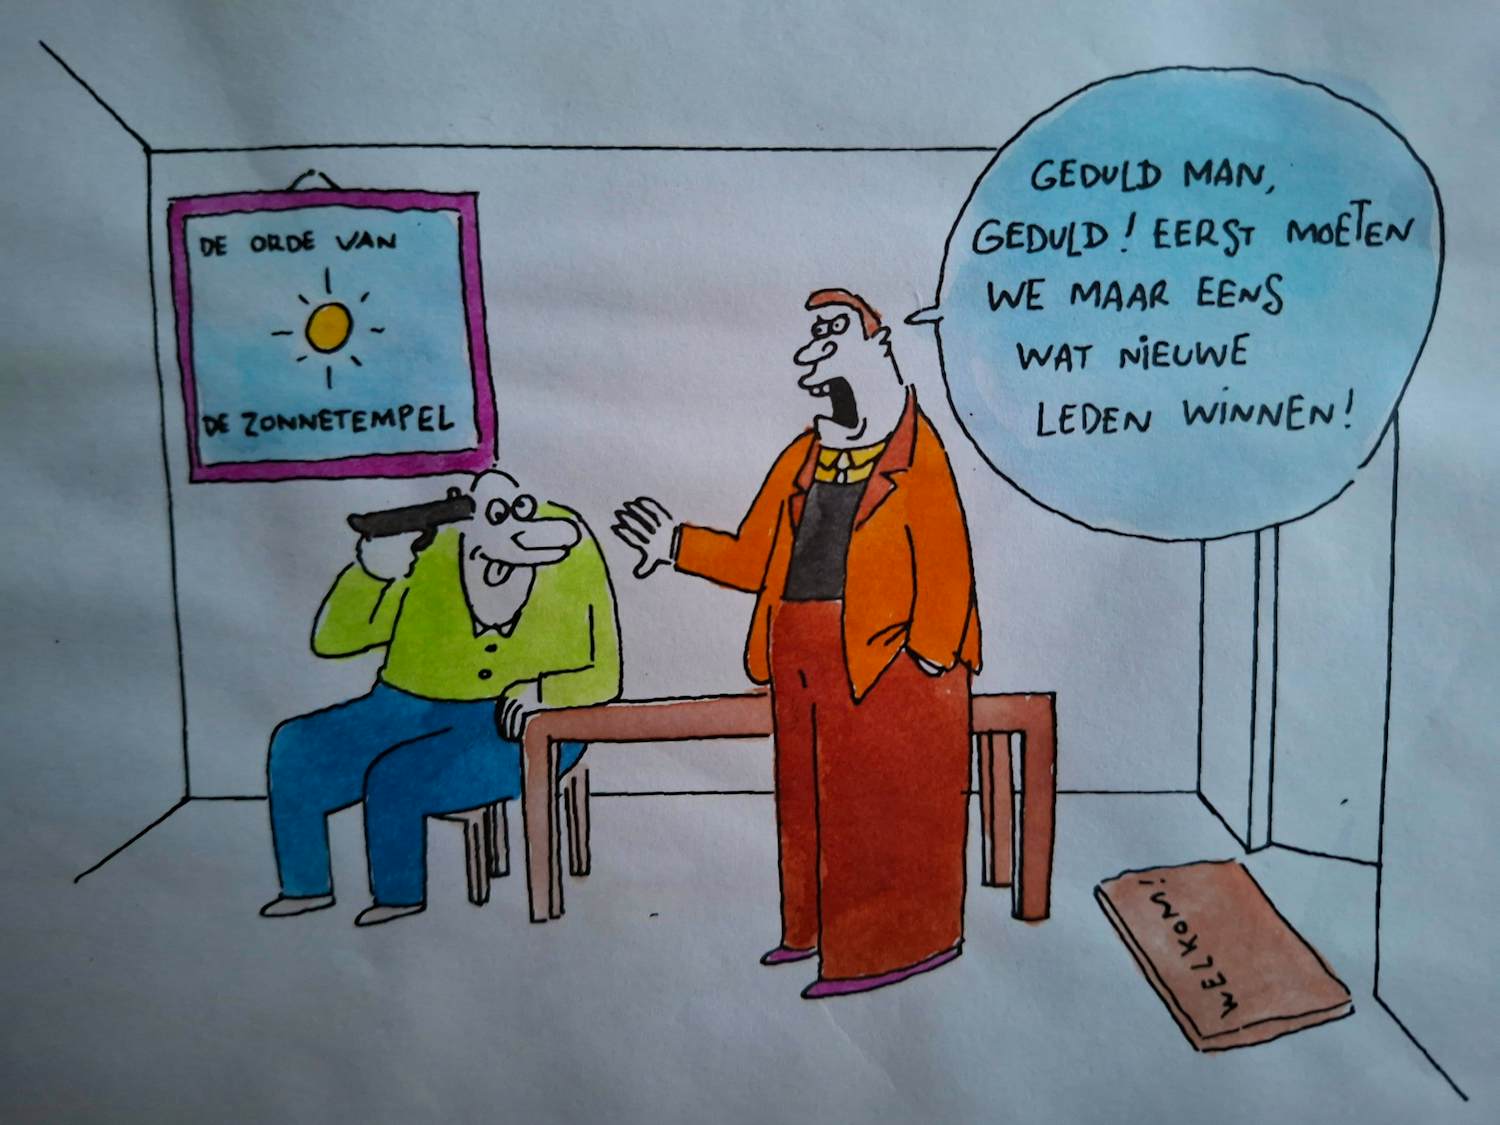 DE ORDE VAN
DE ZONNETEMPEL
GEDULD MAN,
GEDULD! EERST MOETEN
WE MAAR EENS
WAT NIEUWE
LEDEN WINNEN!
WELKOM!